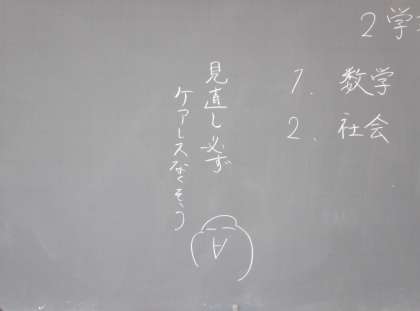 2学
1. 数学
2. 社会
見直し必ず
ケアレスなくそう